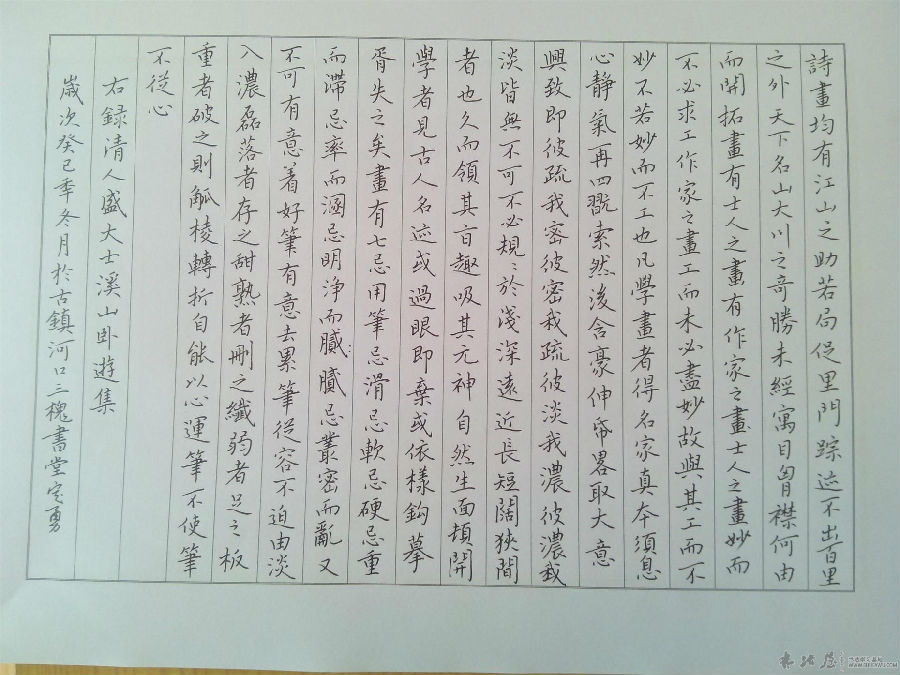 詩畫均有江山之助若局促里門踪迹不出百里
之外天下名山大川之奇勝未經寓目胷襟何由
而開拓畫有士人之畫有作家之畫士人之畫妙而
不必求工作家之畫工而未必盡妙故與其工而不
妙不若妙而不工也凡學畫者得名家真本須息
心靜氣再四翫索然後含豪伸帋畧取大意
興致即彼疏我密彼密我疏彼淡我濃彼濃我
淡皆無不可不必規〻於淺深遠近長短闊狹間
者也久而領其旨趣吸其元神自然生面頓開
學者見古人名迹或過眼即棄或依樣鈎摹
胥失之矣畫有七忌用筆忌滑忌軟忌硬忌重
而滯忌率而溷忌明淨而膩膩忌叢密而亂又
不可有意着好筆有意去累筆從容不迫由淡
入濃磊落者存之甜熟者刪之纖弱者足之板
重者破之則觚棱轉折自能以心運筆不使筆
不從心
右録清人盛大士溪山卧遊集
歲次癸巳季冬月於古鎮河口三槐書堂定勇